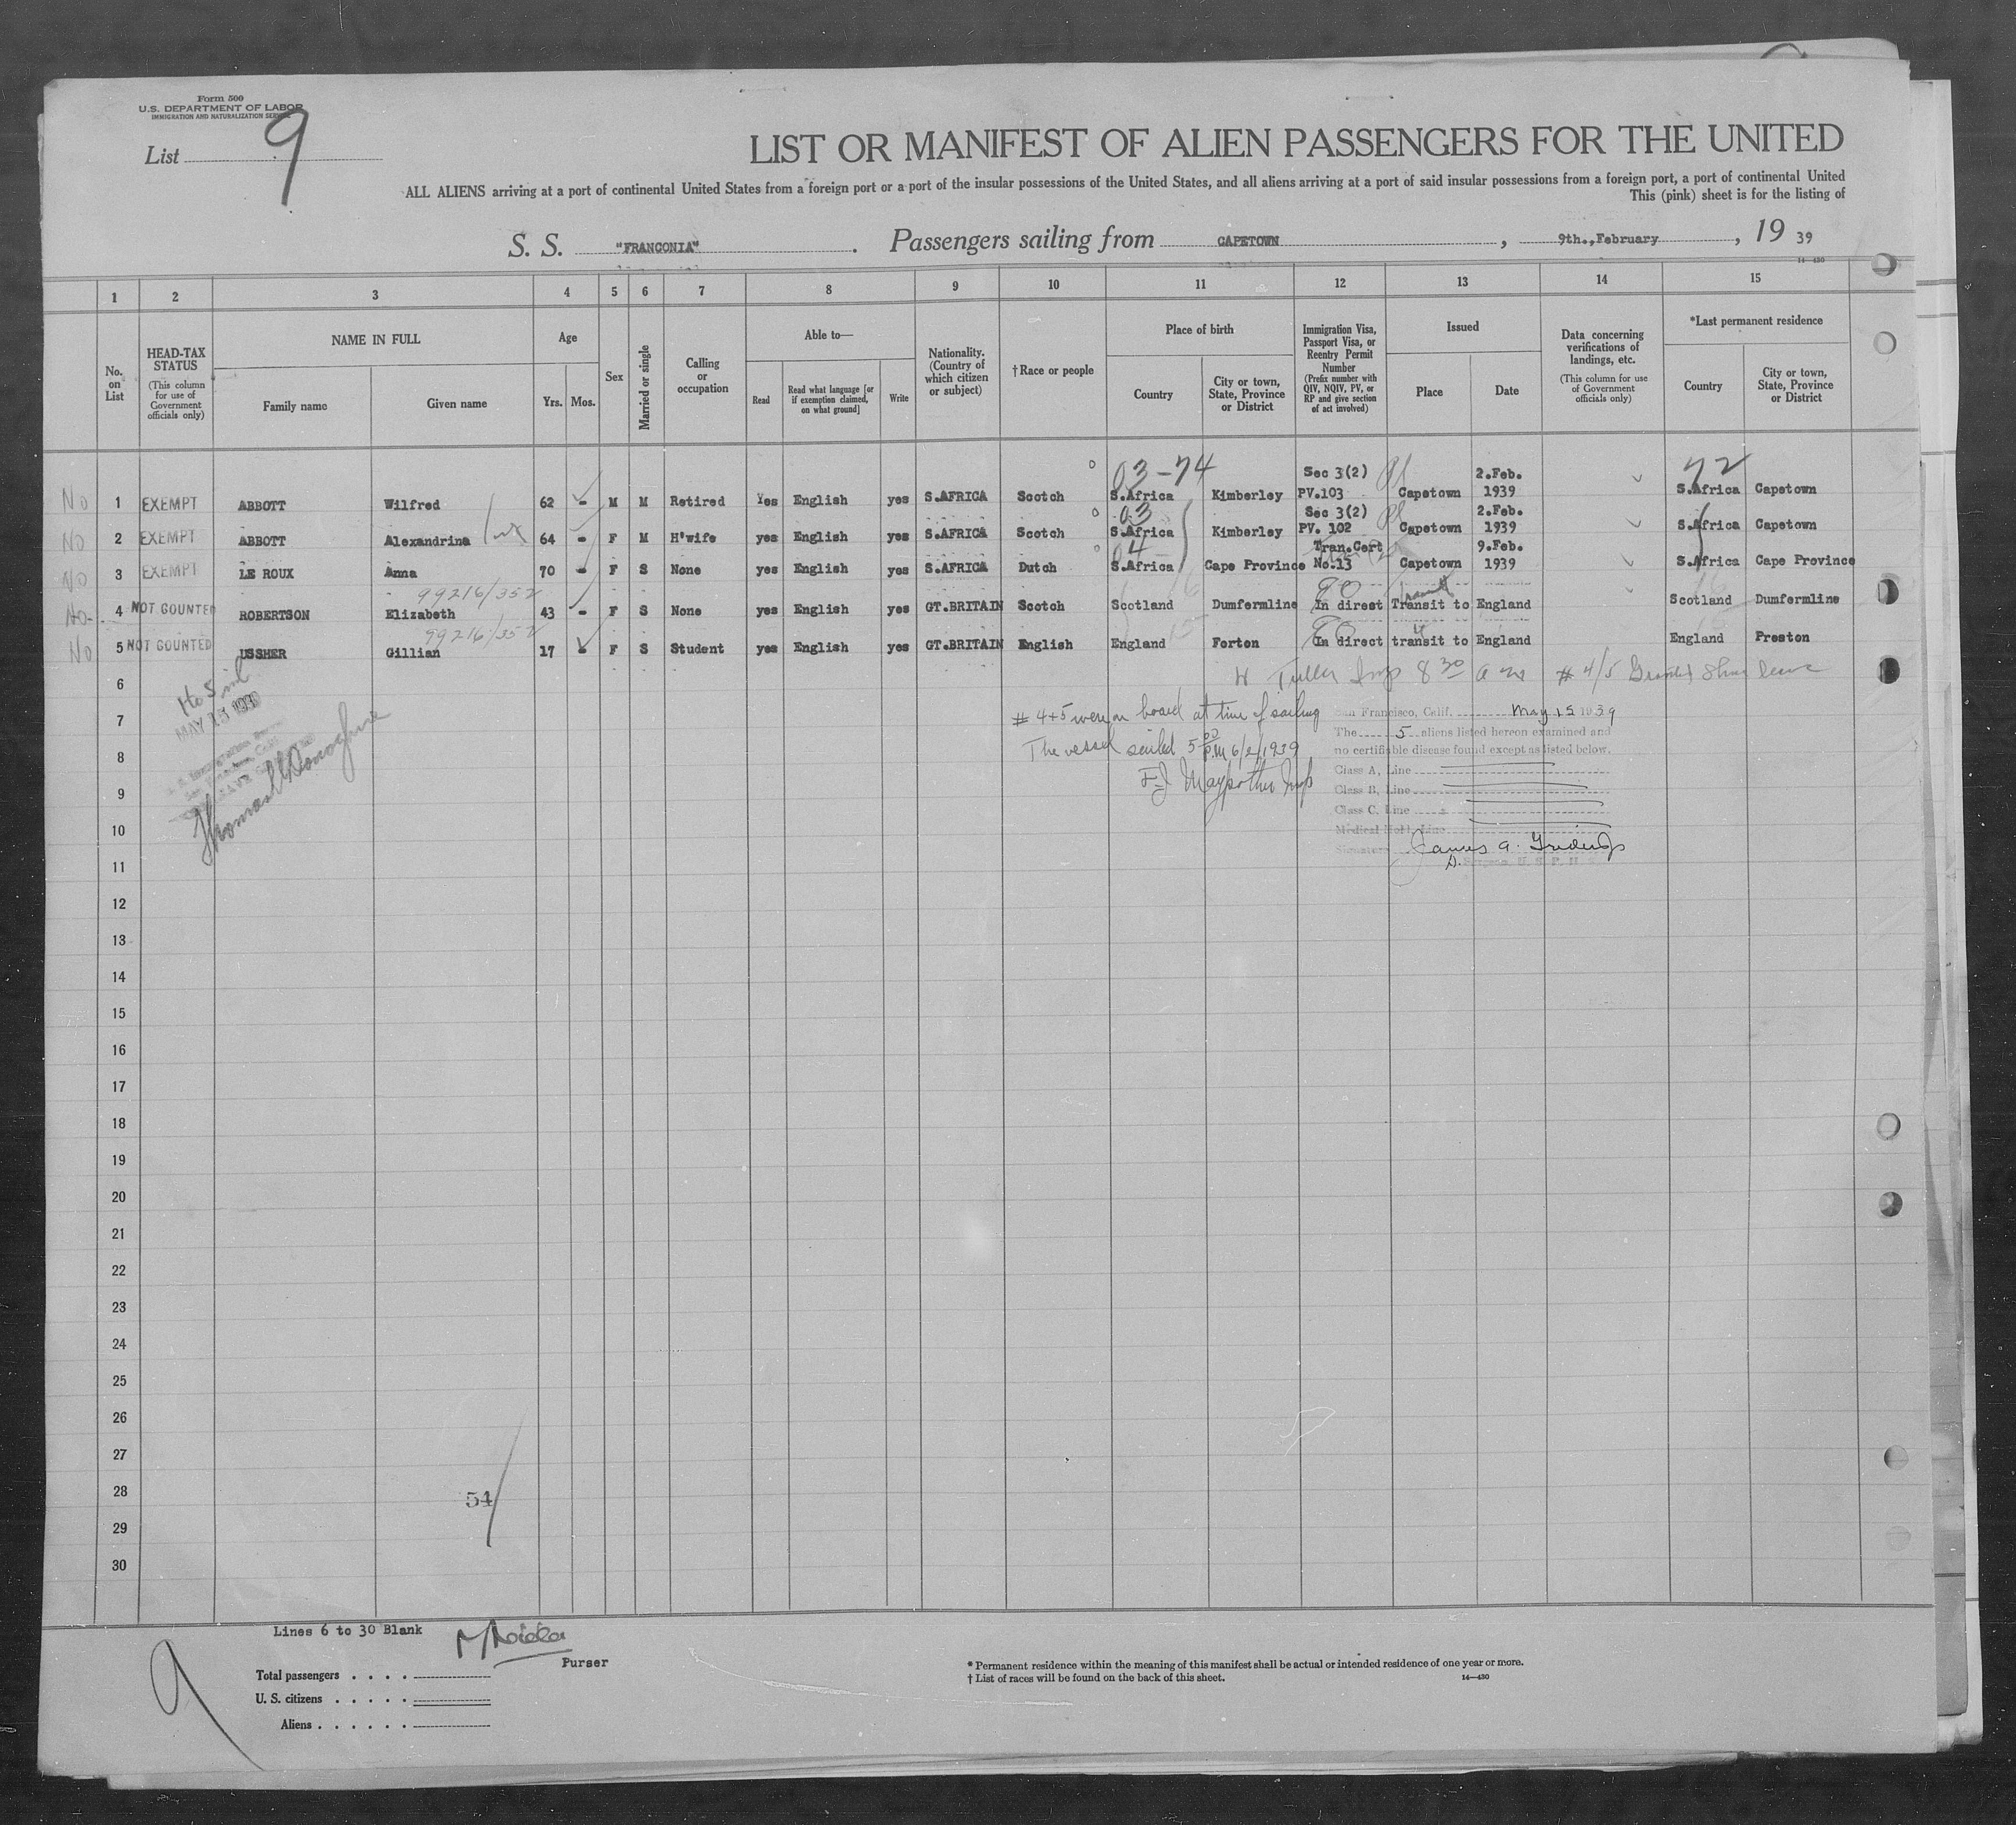 Form 500
U.S. DEPARTMENT OF LABOR
IMMIGRATION AND NATURALIZATION SERVICE
List 9
LIST OR MANIFEST OF ALIEN PASSENGERS FOR THE UNITED
ALL ALIENS arriving at a port of continental United States from a foreign port or a port of the insular possessions of the United States, and all aliens arriving at a port of said insular possessions from a foreign port, a port of continental United
This (pink) sheet is for the listing of
S. S. "FRANCONIA". Passengers sailing from CAPETOWN, 9th.,February, 19 39
14—430
1 2 3 4 5 6 7 8 9 10 11 12 13 14 15
No. on List
HEAD-TAX STATUS
(This column for use of Government officials only)
NAME IN FULL
Family name
Given name
Age
Yrs. Mos.
Sex
Married or single
Calling or occupation
Able to—
Read
Read what language [or if exemption claimed, on what ground]
Write
Nationality. (Country of which citizen or subject)
†Race or people
Place of birth
Country
City or town, State, Province or District
Immigration Visa, Passport Visa, or Reentry Permit Number
(Prefix number with QIV, NQIV, PV, or RP and give section of act involved)
Issued
Place
Date
Data concerning verifications of landings, etc.
(This column for use of Government officials only)
*Last permanent residence
Country
City or town, State, Province or District
03-74 Sec 3(2) 2.Feb. 72
No 1 EXEMPT ABBOTT Wilfred 62 - M M Retired Yes English yes S.AFRICA Scotch S.Africa Kimberley PV.103 Capetown 1939 S.Africa Capetown
03 Sec 3(2) 2.Feb.
No 2 EXEMPT ABBOTT Alexandrina 64 - F M H'wife yes English yes S.AFRICA Scotch S.Africa Kimberley PV. 102 Capetown 1939 S.Africa Capetown
04 Tran.Cert 9.Feb.
No 3 EXEMPT LE ROUX Anna 70 - F S None yes English yes S.AFRICA Dutch S.Africa Cape Province No.13 Capetown 1939 S.Africa Cape Province
99216/352
No 4 NOT COUNTED ROBERTSON Elizabeth 43 - F S None yes English yes GT.BRITAIN Scotch Scotland Dumfermline In direct Transit to England Scotland Dumfermline
99216/352
No 5 NOT COUNTED USSHER Gillian 17 - F S Student yes English yes GT.BRITAIN English England Forton In direct transit to England England Preston
6
8 30 a m # 4/5 Granted Shore leave
MAY 15
7
# 4+5 were on board at time of sailing
San Francisco, Calif. May 15 1939
The 5 aliens listed hereon examined and
8
The vessel sailed 5 00 P.M 6/2/1939
no certifiable disease found except as listed below.
Class A, Line
9
Class B, Line
Class C, Line
10
Medical Hold, Line
Signature James A.
11
Surgeon, U. S. P. H. S.
12
13
14
15
16
17
18
19
20
21
22
23
24
25
26
27
28
54
29
30
Lines 6 to 30 Blank
Purser
9
Total passengers . . . .
U. S. citizens . . . . .
Aliens . . . . . .
* Permanent residence within the meaning of this manifest shall be actual or intended residence of one year or more.
† List of races will be found on the back of this sheet.
14—430